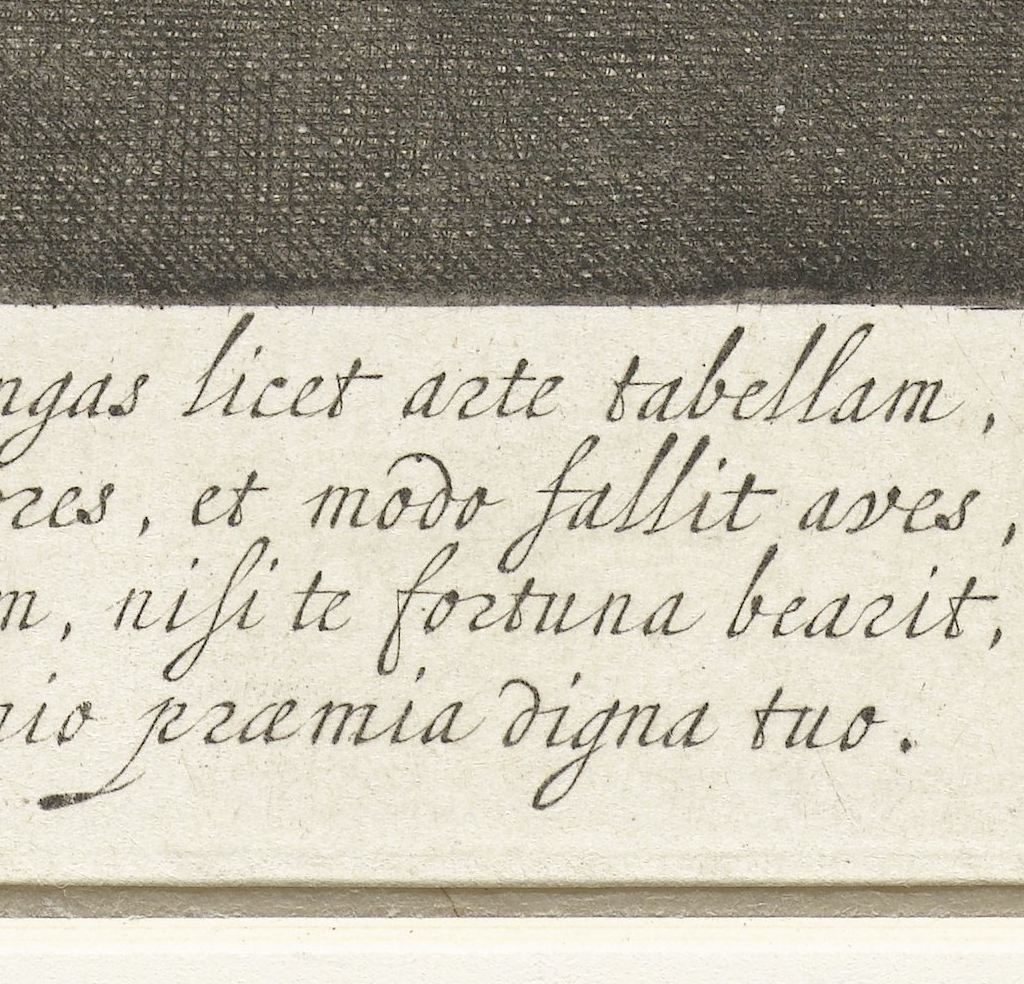 ngas licet arte tabellam,
res, et modo fallit aves,
m, niſi te fortuna bearit,
io præmia digna tuo.